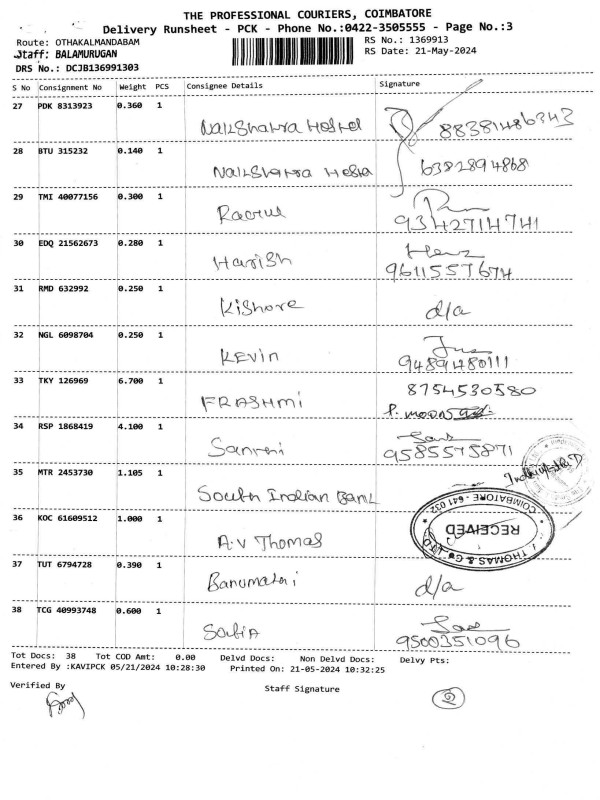 THE PROFESSIONAL COURIERS, COIMBATORE
Delivery Runsheet - PCK - Phone No.:0422-3505555 - Page No.:3
Route: OTHAKALMANDABAM
RS No.: 1369913
Staff: BALAMURUGAN
RS Date: 21-May-2024
DRS No.: DCJB136991303
S No Consignment No Weight PCS Consignee Details Signature
27 PDK 8313923 0.360 1
88381486343
28 BTU 315232 0.140 1
6382894868
29 TMI 40077156 0.300 1
9342714741
30 EDQ 21562673 0.280 1
Harish
9611557674
31 RMD 632992 0.250 1
Kishore d/a
32 NGL 6098704 0.250 1
Kevin
9489480111
33 TKY 126969 6.700 1
8754530580
FRASHmi
34 RSP 1868419 4.100 1
9585575871
35 MTR 2453730 1.105 1
South Indian Bank
36 KOC 61609512 1.000 1
A.V Thomas
COIMBATORE - 641 032
RECEIVED
THOMAS & Co
37 TUT 6794728 0.390 1
d/a
38 TCG 40993748 0.600 1
9500351096
Tot Docs: 38 Tot COD Amt: 0.00 Delvd Docs: Non Delvd Docs: Delvy Pts:
Entered By :KAVIPCK 05/21/2024 10:28:30 Printed On: 21-05-2024 10:32:25
Verified By
Staff Signature